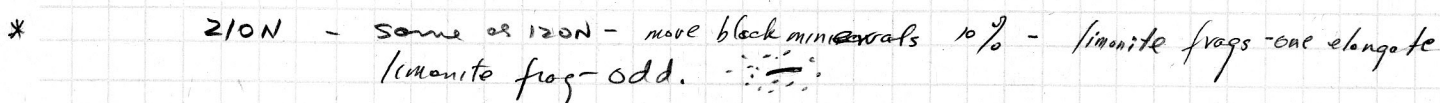 * 210N - same as 120N - more black minerals 10% - limonite frags - one elongate
limonite frag - odd.